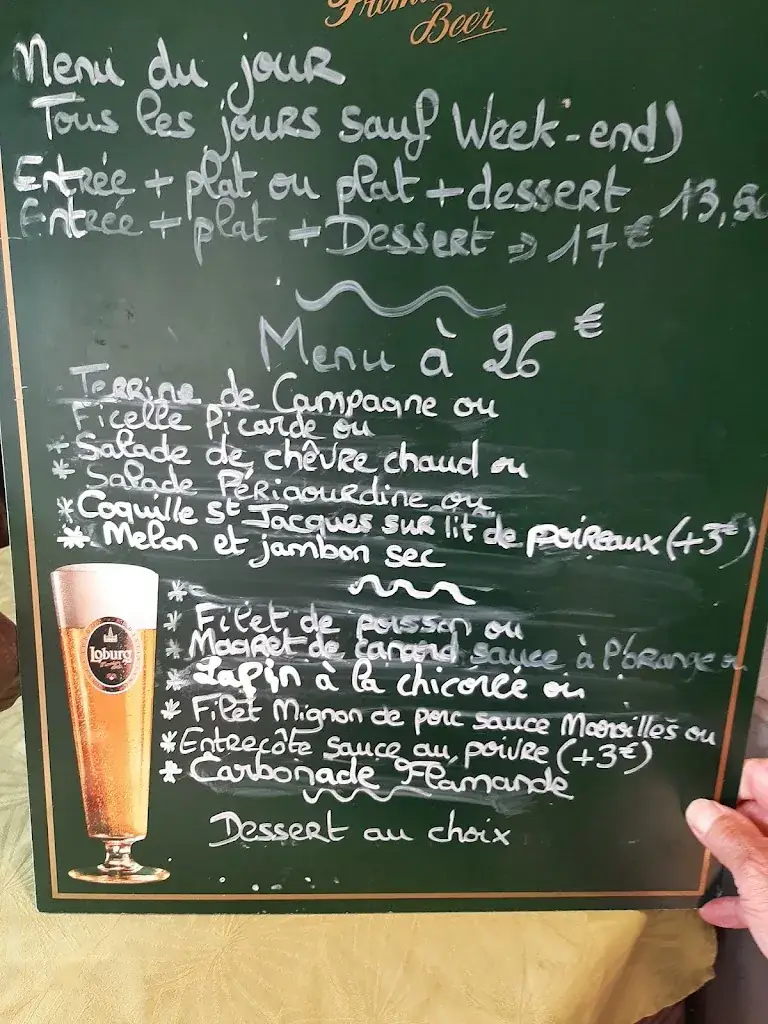 Premium
Beer
Menu du jour
Tous les jours sauf Week-end)
Entrée + plat ou plat + dessert 13,50
Entrée + plat + Dessert => 17 €
Menu à 26 €
Terrine de Campagne ou
Ficelle Picarde ou
* Salade de chêvre chaud ou
* Salade Périgourdine ou
* Coquille St Jacques sur lit de poireaux (+3€)
* Melon et jambon sec
*
* Filet de poisson ou
* Magret de canard sauce à l'orange ou
* Lapin à la chicorée ou
* Filet Mignon de porc sauce Maroilles ou
* Entrecôte sauce au poivre (+3€)
* Carbonade Flamande
Dessert au choix
Loburg